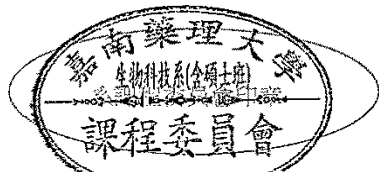 嘉南藥理大學
生物科技系(含碩士班)
課程委員會